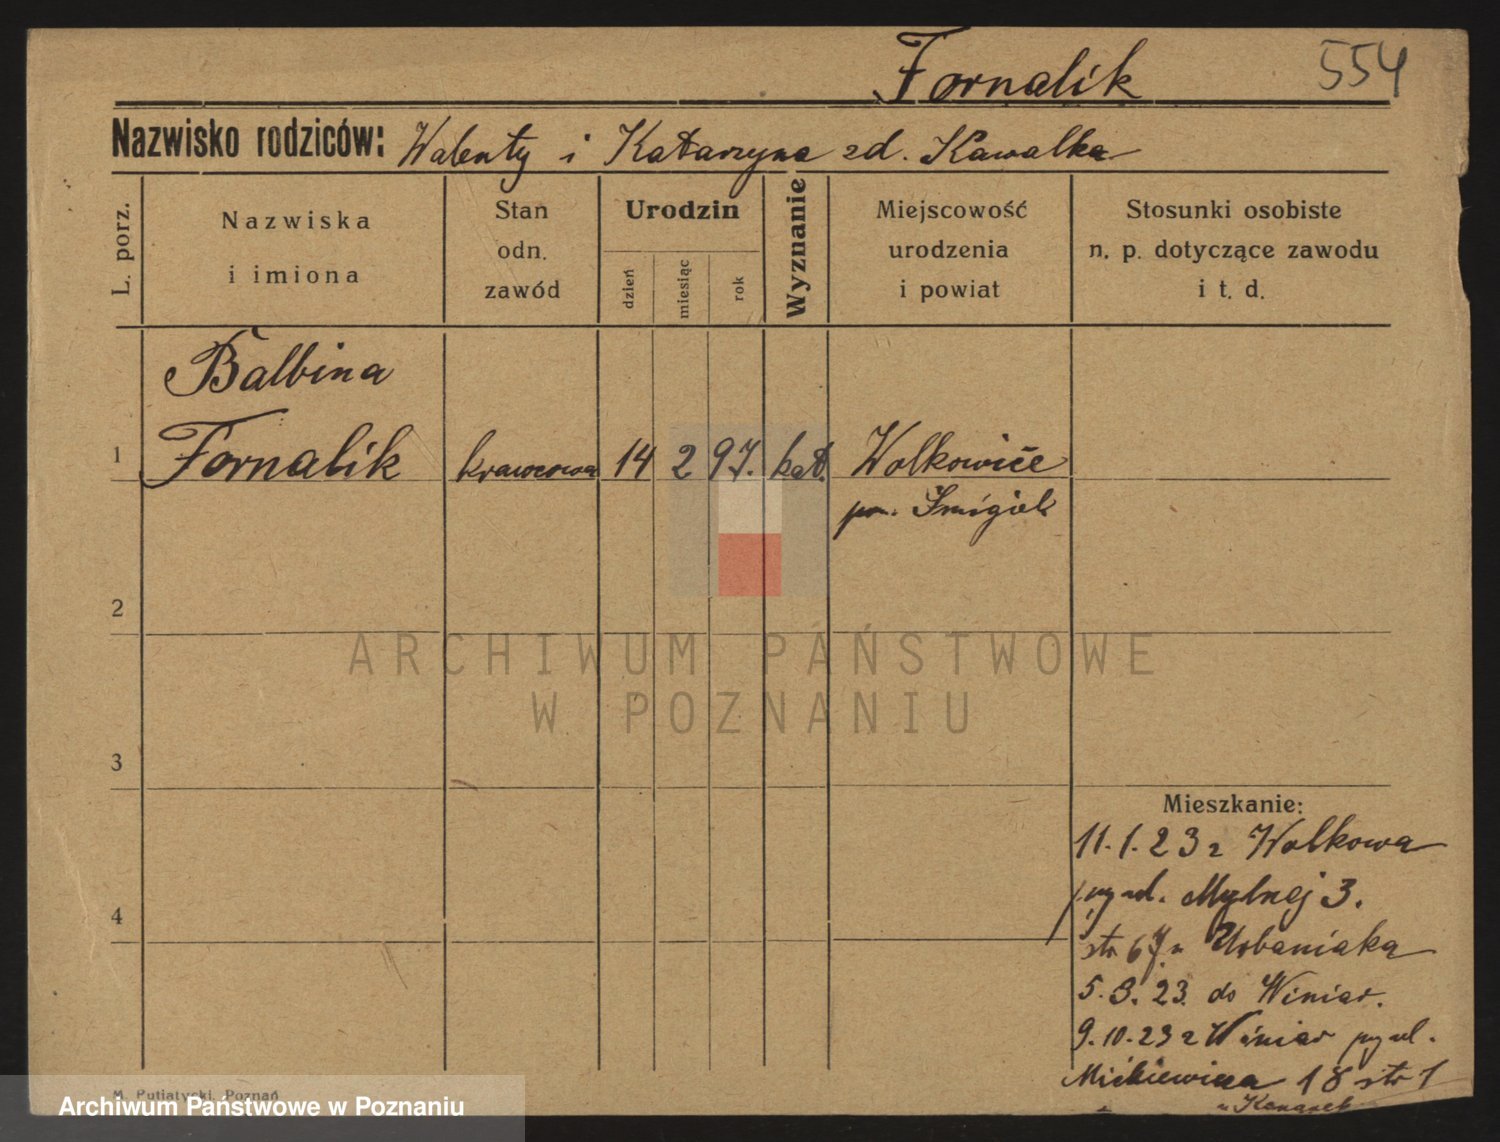 Fornalik 554
Nazwisko rodziców: Walenty i Katarzyna zd. Kawalka
L. porz.
Nazwiska
i imiona
Stan
odn.
zawód
Urodzin
dzień
miesiąc
rok
Wyznanie
Miejscowość
urodzenia
i powiat
Stosunki osobiste
n. p. dotyczące zawodu
i t. d.
Balbina
1 Fornalik krawcowa 14 2 97. kat. Wolkowice
pow. Śmigiel
2
ARCHIWUM PAŃSTWOWE
W POZNANIU
3
4
Mieszkanie:
11.1.23 z Wolkowa
przy ul. Mylnej 3.
str 67 u Urbaniaka
5.3.23. do Winiar.
9.10.23 z Winiar przy ul.
Mickiewicza 18 str 1
u
M. Putiatycki, Poznań
Archiwum Państwowe w Poznaniu